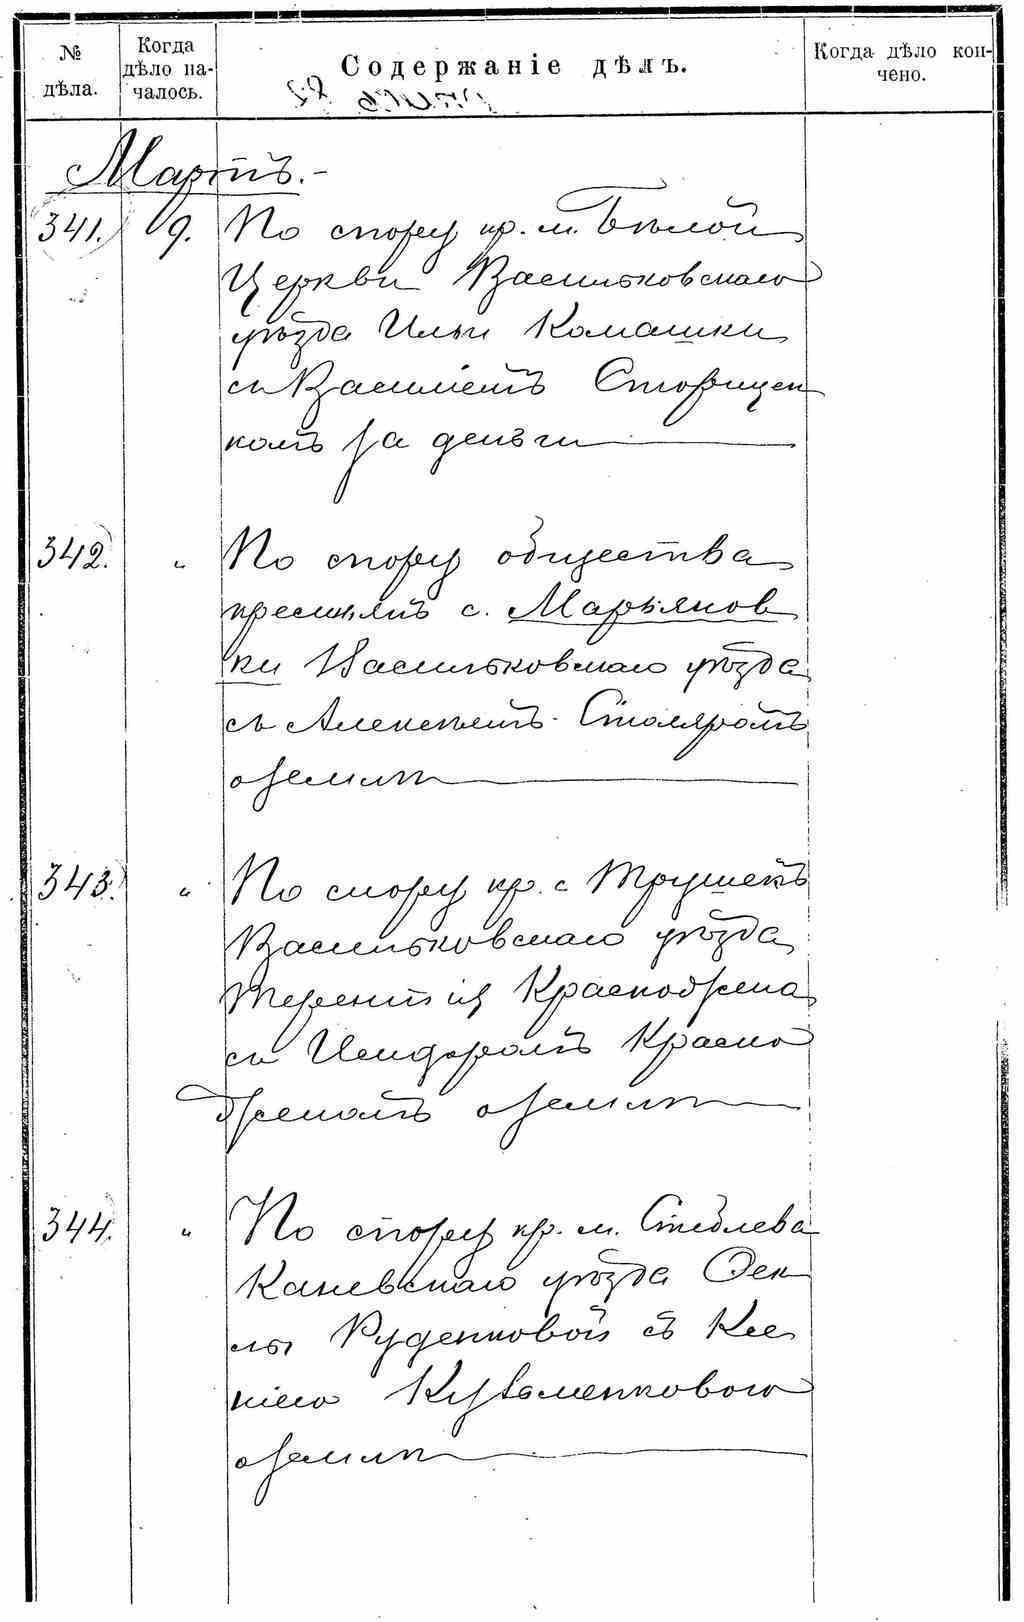 № дѣла.
Когда дѣло началось.
Содержаніе дѣлъ.
Когда дѣло кончено.
Мартъ.-
341. 9. По спору кр. м. Бѣлой
Церкви Васильковскаго
уѣзда Ильи Комашки
съ Василіемъ Сторищен
комъ за деньги
342. " По спору общества
крестьянъ с. Марьянов
ки Васильковскаго уѣзда
съ Алексѣемъ Столяромъ
о землѣ
343. " По спору кр. с. Трушекъ
Васильковскаго уѣзда
Терентія Краснодзена
съ Исидоромъ Красно
дзеномъ о землѣ
344. " По спору кр. м. Стеблева
Каневскаго уѣзда Ѳек
лы Руденковой съ Ксе
ніею Кузьменковою
о землѣ